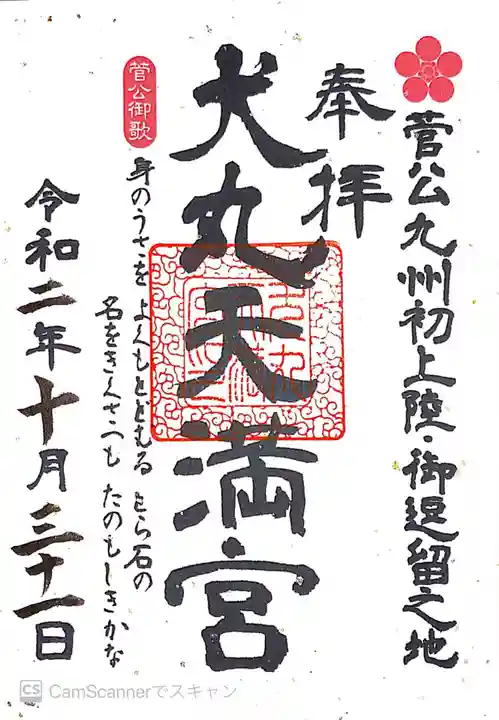 菅公九州初上陸・御逗留之地
奉拝
犬丸天満宮
菅公御歌
身のうさを よくもとどむる とら石の
名をきくさへも たのもしきかな
令和二年十月三十一日
CS CamScannerでスキャン